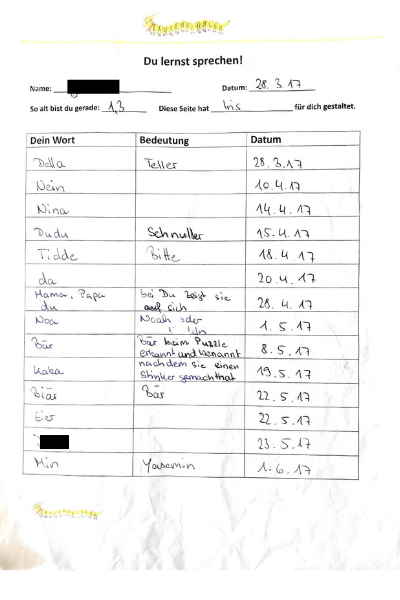 TAUSENDFÜßLER
Du lernst sprechen!
Name: Datum: 28.3.17
So alt bist du gerade: 1,3 Diese Seite hat Iris für dich gestaltet.
Dein Wort Bedeutung Datum
Della Teller 28.3.17
Nein 10.4.17
Nina 14.4.17
Dudu Schnuller 15.4.17
Tidde Bitte 18.4.17
da 20.4.17
Mama, Papa bei Du zeigt sie
du auf sich 28.4.17
Noa Noah oder 1.5.17
Bär Bär beim Puzzle
erkannt und benannt 8.5.17
Kaka nachdem sie einen
Stinker gemacht hat 19.5.17
Biär Bär 22.5.17
Eier 22.5.17
23.5.17
Min Yasemin 1.6.17